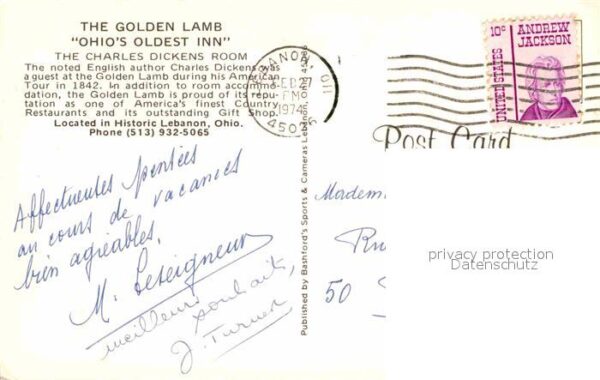 THE GOLDEN LAMB
"OHIO'S OLDEST INN"
THE CHARLES DICKENS ROOM
The noted English author Charles Dickens was
a guest at the Golden Lamb during his American
Tour in 1842. In addition to room accommo-
dation, the Golden Lamb is proud of its repu-
tation as one of America's finest Country
Restaurants and its outstanding Gift Shop.
Located in Historic Lebanon, Ohio.
Phone (513) 932-5065
Affectueuses pensées
au cours de vacances
bien agréables.
M. Leseigneur
meilleurs souhaits,
J. Turner
Published by Bashford's Sports & Cameras Lebanon, Ohio 45036
LEBANON, OH
FEB 27
PM
1974
45036
10c ANDREW
JACKSON
UNITED STATES
Post Card
Madem
50
privacy protection
Datenschutz